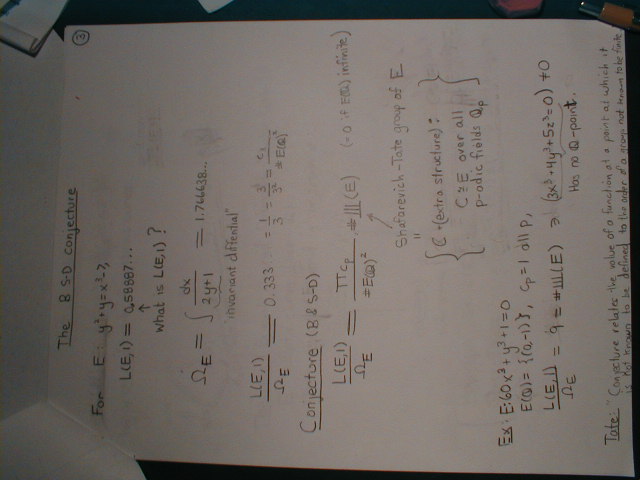 ③
The B S-D conjecture
For E: y²+y=x³-7,
L(E,1) = 0.58887...
↑
what is L(E,1)?
Ω_E = ∫ dx/(2y+1) = 1.766638...
"invariant differential"
L(E,1)/Ω_E = 0.333... = 1/3 = 3/3² = c₃/#E(Q)²
Conjecture (B & S-D)
L(E,1)/Ω_E = ΠC_p/#E(Q)² · #Ш(E) (=0 if E(Q) infinite)
Shafarevich-Tate group of E
"
{ C +(extra structure) :
C ≅ E over all
p-adic fields Q_p }
Ex: E: 60x³+y³+1=0
E(Q) = {(0,-1)}, c_p = 1 all p,
L(E,1)/Ω_E = 9 = #Ш(E) ∋ (3x³+4y³+5z³=0) ≠0
Has no Q-point.
Tate: "Conjecture relates the value of a function at a point at which it
is not known to be defined to the order of a group not known to be finite